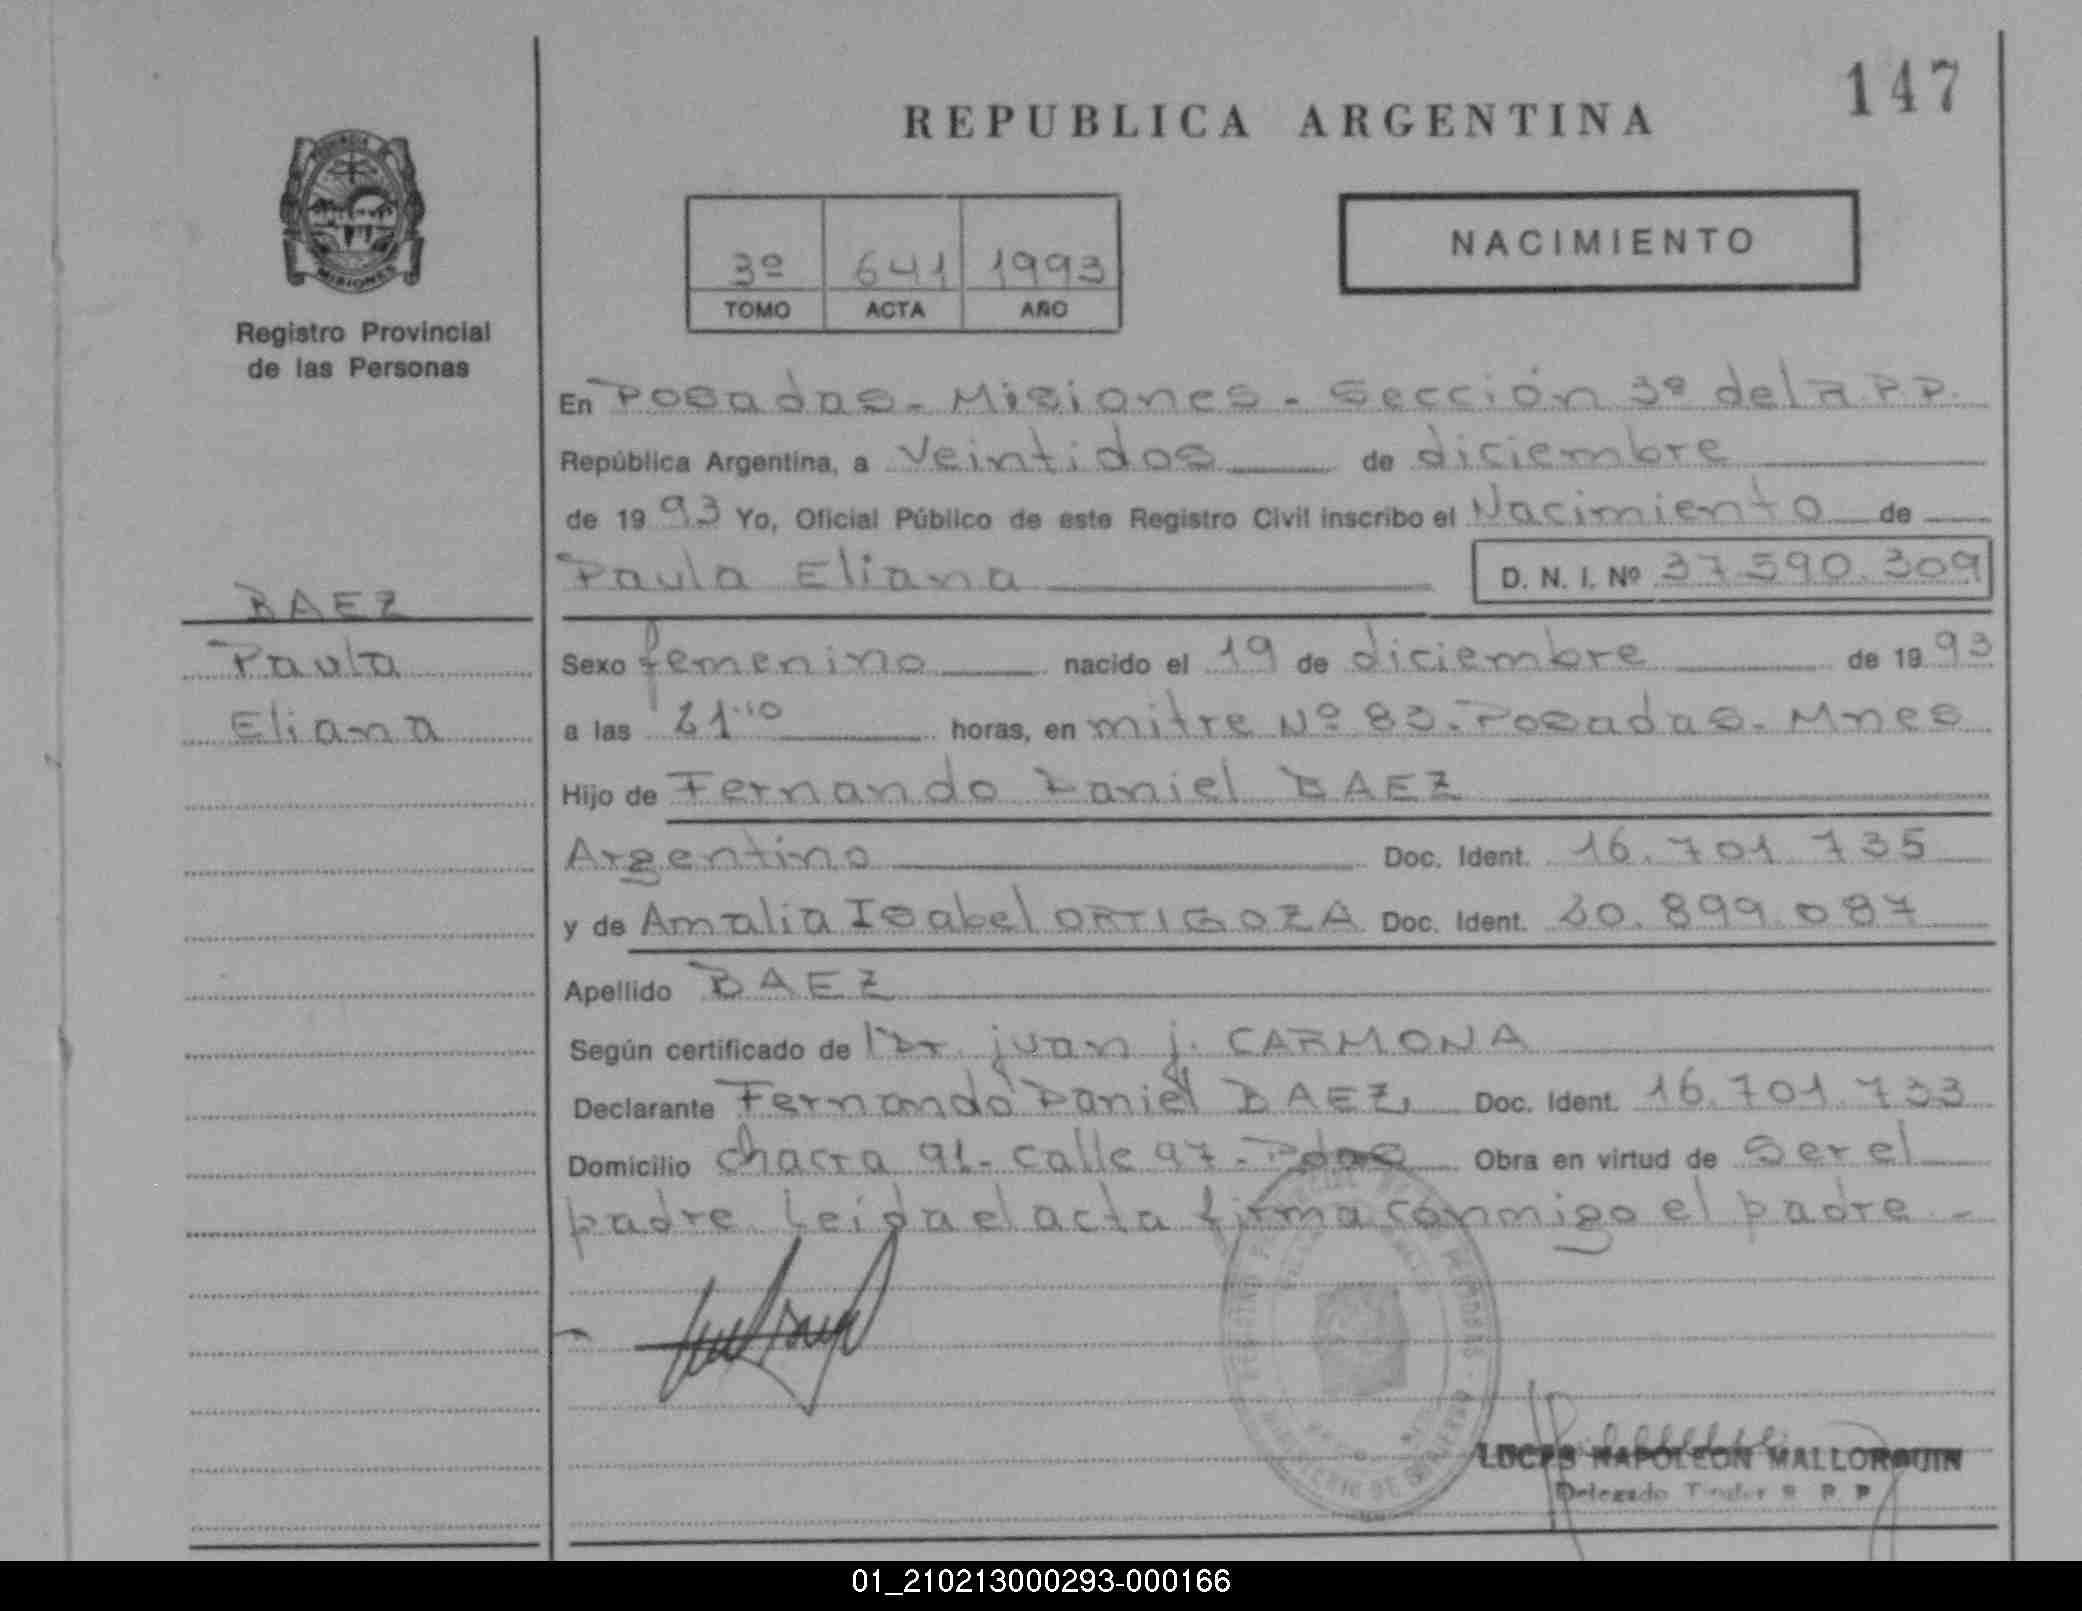 147
REPUBLICA ARGENTINA
MISIONES
Registro Provincial
de las Personas
3º 641 1993
TOMO ACTA AÑO
NACIMIENTO
En Posadas - Misiones - Sección 3º de la P.P.
República Argentina, a Veintidos de diciembre
de 1993 Yo, Oficial Público de este Registro Civil inscribo el Nacimiento de
Paula Eliana D. N. I. Nº 37.590.309
BAEZ
Paula
Eliana
Sexo femenino nacido el 19 de diciembre de 1993
a las 21:10 horas, en mitre Nº 83. Posadas. Mnes
Hijo de Fernando Daniel BAEZ
Argentino Doc. Ident. 16.701.735
y de Amalia Isabel ORTIGOZA Doc. Ident. 20.899.087
Apellido BAEZ
Según certificado de Dr. juan j. CARMONA
Declarante Fernando Daniel BAEZ, Doc. Ident. 16.701.733
Domicilio chacra 91 - calle 97 - Pdas Obra en virtud de Ser el
padre. Leida el acta firma conmigo el padre. -
NAPOLEON MALLORQUIN
Delegado R. P. P.
01_210213000293-000166